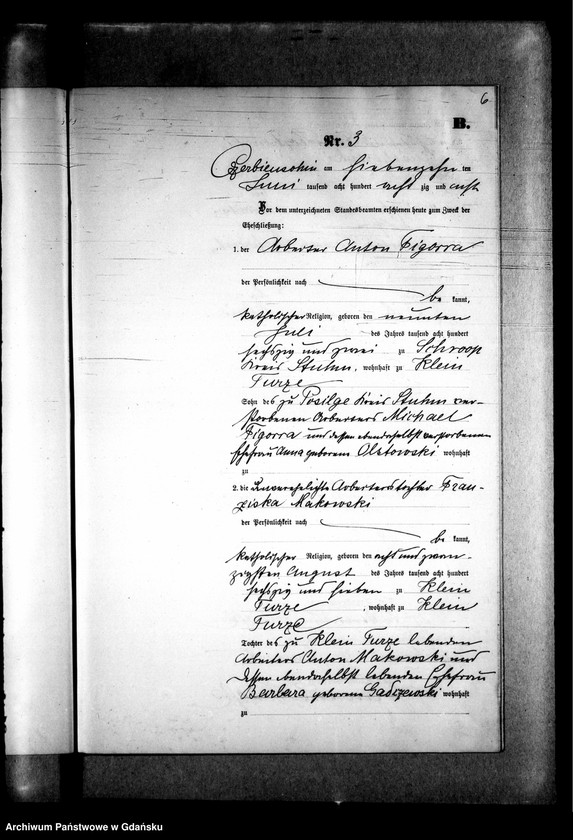 6
B.
Nr. 3
Czerbienschin am siebenzehn ten
Juni tausend acht hundert acht zig und acht
Vor dem unterzeichneten Standesbeamten erschienen heute zum Zweck der
Eheschließung:
1. der Arbeiter Anton Figorra
der Persönlichkeit nach
be kannt,
katholischer Religion, geboren den neunten
Juli des Jahres tausend acht hundert
sechszig und zwei zu Schroop
Kreis Stuhm, wohnhaft zu Klein
Turze
Sohn des zu Posilge Kreis Stuhm ver-
storbenen Arbeiters Michael
Figorra und dessen ebendaselbst verstorbenen
Ehefrau Anna geborene Olstowski wohnhaft
zu
2. die Unverehelichte Arbeiterstochter Fran-
ziska Makowski
der Persönlichkeit nach
be kannt,
katholischer Religion, geboren den acht und zwan-
zigsten August des Jahres tausend acht hundert
sechszig und sieben zu Klein
Turze, wohnhaft zu Klein
Turze
Tochter des zu Klein Turze lebenden
Arbeiters Anton Makowski und
dessen ebendaselbst lebenden Ehefrau
Barbara geborene Gadzewski wohnhaft
zu
Archiwum Państwowe w Gdańsku